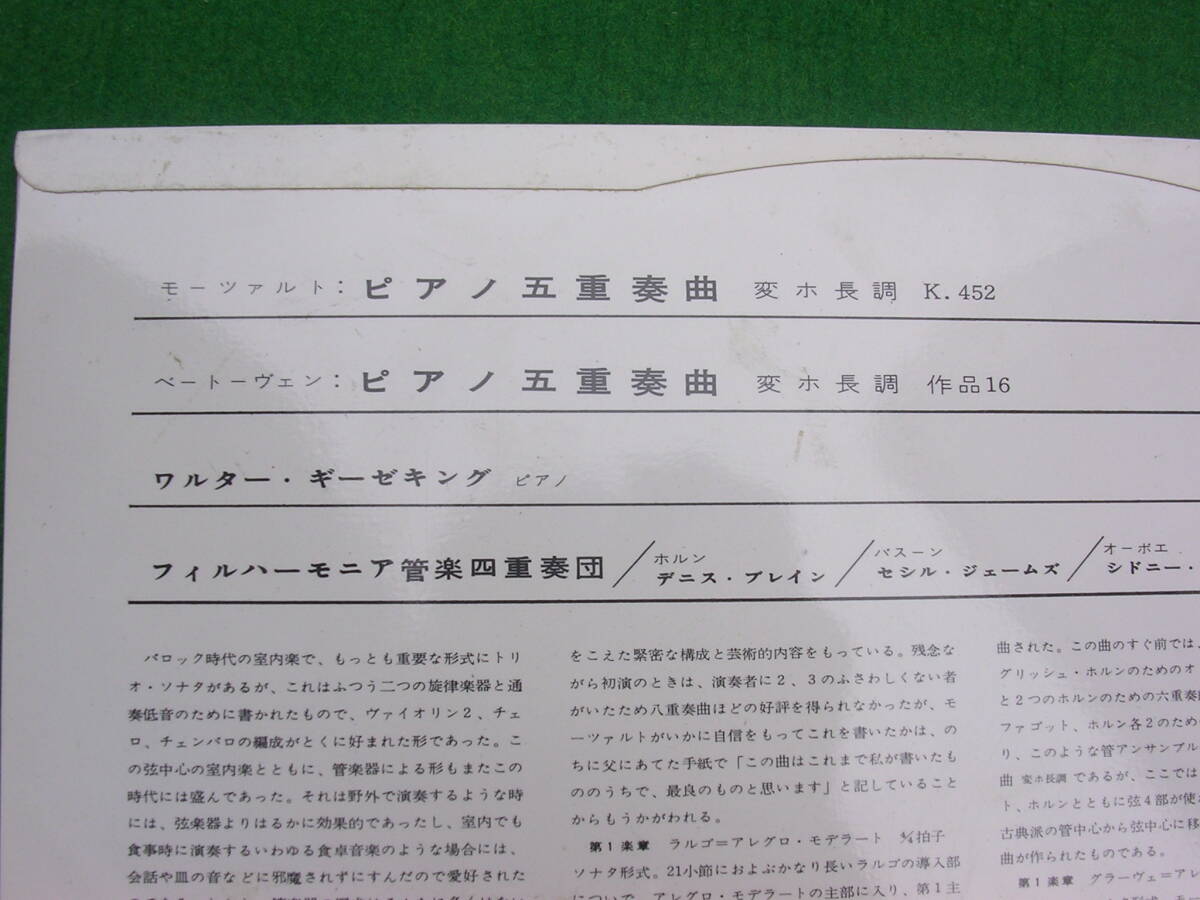 モーツァルト: ピアノ五重奏曲 変ホ長調 K.452
ベートーヴェン: ピアノ五重奏曲 変ホ長調 作品16
ワルター・ギーゼキング ピアノ
フィルハーモニア管楽四重奏団／ホルン デニス・ブレイン／バスーン セシル・ジェームズ／オーボエ シドニー・
バロック時代の室内楽で、もっとも重要な形式にトリ
オ・ソナタがあるが、これはふつう二つの旋律楽器と通
奏低音のために書かれたもので、ヴァイオリン2、チェ
ロ、チェンバロの編成がとくに好まれた形であった。こ
の弦中心の室内楽とともに、管楽器による形もまたこの
時代には盛んであった。それは野外で演奏するような時
には、弦楽器よりはるかに効果的であったし、室内でも
食事時に演奏するいわゆる食卓音楽のような場合には、
会話や皿の音などに邪魔されずにすんだので愛好された
をこえた緊密な構成と芸術的内容をもっている。残念な
がら初演のときは、演奏者に2、3のふさわしくない者
がいたため八重奏曲ほどの好評を得られなかったが、モ
ーツァルトがいかに自信をもってこれを書いたかは、の
ちに父にあてた手紙で「この曲はこれまで私が書いたも
ののうちで、最良のものと思います」と記していること
からもうかがわれる。
第1楽章 ラルゴ=アレグロ・モデラート 4/4拍子
ソナタ形式。21小節におよぶかなり長いラルゴの導入部
についで、アレグロ・モデラートの主部に入り、第1主
曲された。この曲のすぐ前では、
グリッシュ・ホルンのためのオ
と2つのホルンのための六重奏
ファゴット、ホルン各2のため
り、このような管アンサンブル
曲 変ホ長調 であるが、ここでは
ト、ホルンとともに弦4部が使
古典派の管中心から弦中心に移
曲が作られたものである。
第1楽章 グラーヴェ=アレ